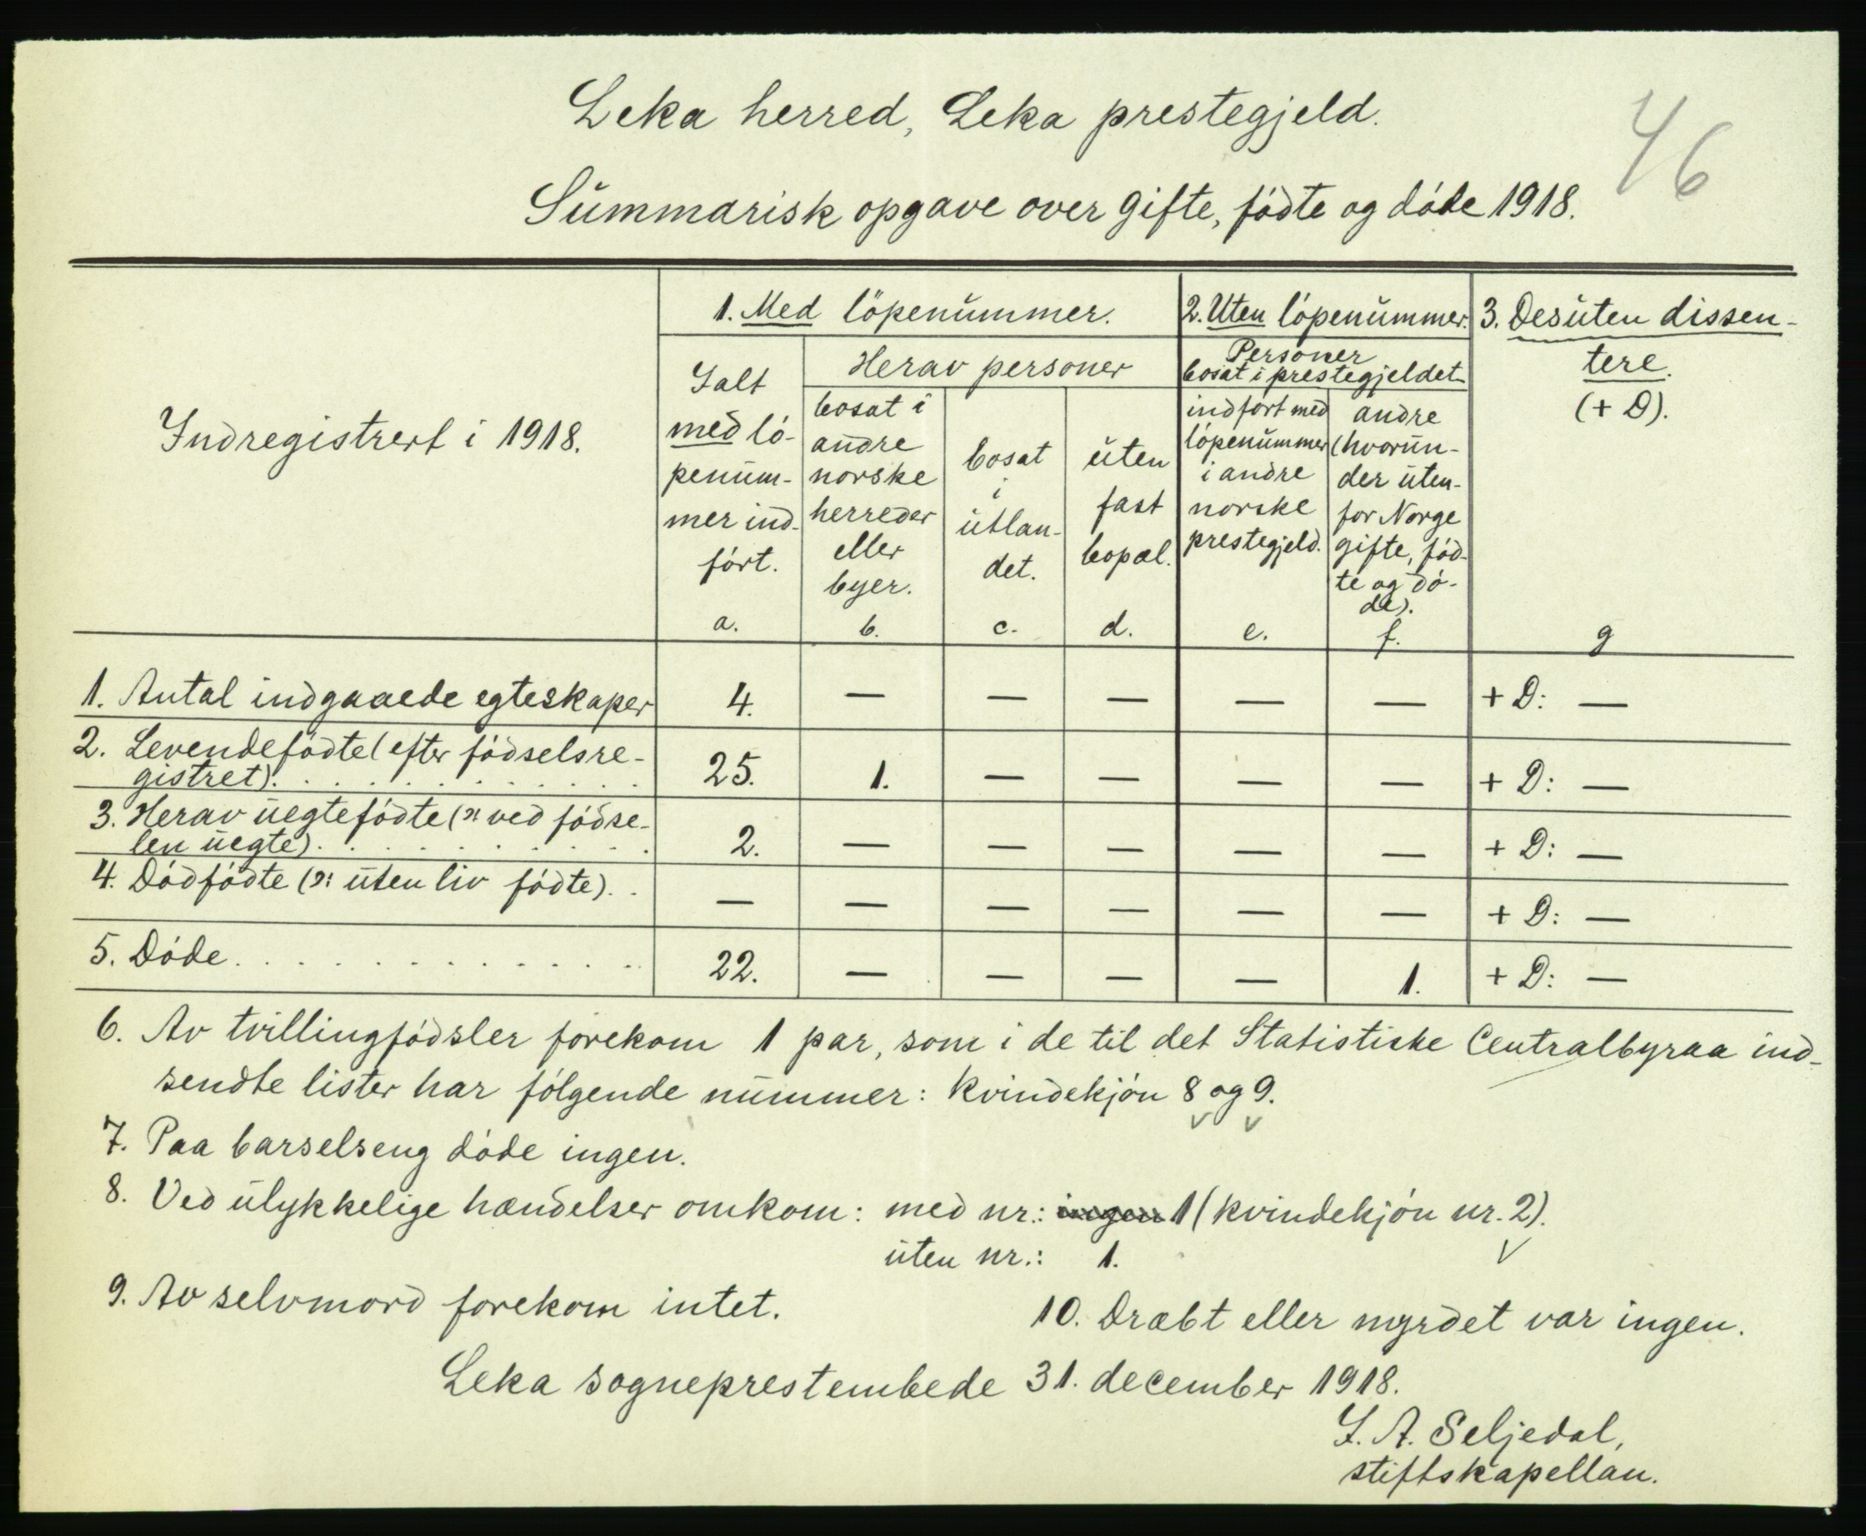 Leka herred, Leka prestegjeld.
46
Summarisk opgave over gifte, födte og döde 1918.
Indregistrert i 1918.
1. Med löpenummer.
2. Uten löpenummer.
3. Desuten dissen-
tere.
(+ D).
Ialt
med lö-
penum-
mer ind-
fört.
a.
Herav personer
bosat i
andre
norske
herreder
eller
byer.
b.
bosat
i
utlan-
det.
c.
uten
fast
bopæl.
d.
Personer
bosat i prestegjeldet
indført med
löpenummer
i andre
norske
prestegjeld.
e.
andre
(hvorun-
der uten-
for Norge
gifte, föd-
te og dö-
de).
f.
g
1. Antal indgaaede egteskaper 4. — — — — — + D: —
2. Levendefödte (efter födselsre-
gistret). . . . . . . . . . . . 25. 1. — — — — + D: —
3. Herav uegtefödte (ɔ: ved födse-
len uegte). . . . . . . . . . . 2. — — — — — + D: —
4. Dödfödte (ɔ: uten liv födte). . — — — — — — + D: —
5. Döde. . . . . . . . . . . . . 22. — — — — 1. + D: —
6. Av tvillingfödsler forekom 1 par, som i de til det Statistiske Centralbyraa ind-
sendte lister har fölgende nummer: kvindekjön 8 og 9.
7. Paa barselseng döde ingen.
8. Ved ulykkelige hændelser omkom: med nr.: ingen 1 (kvindekjön nr. 2).
uten nr.: 1.
9. Av selvmord forekom intet.
10. Dræbt eller myrdet var ingen.
Leka sogneprestembede 31. december 1918.
I. A. Seljedal,
stiftskapellan.